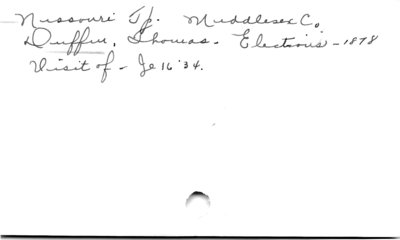 Nissouri Tp. Middlesex Co.
Duffin, Thomas - Elections - 1878
Visit of - Je 16 '34.